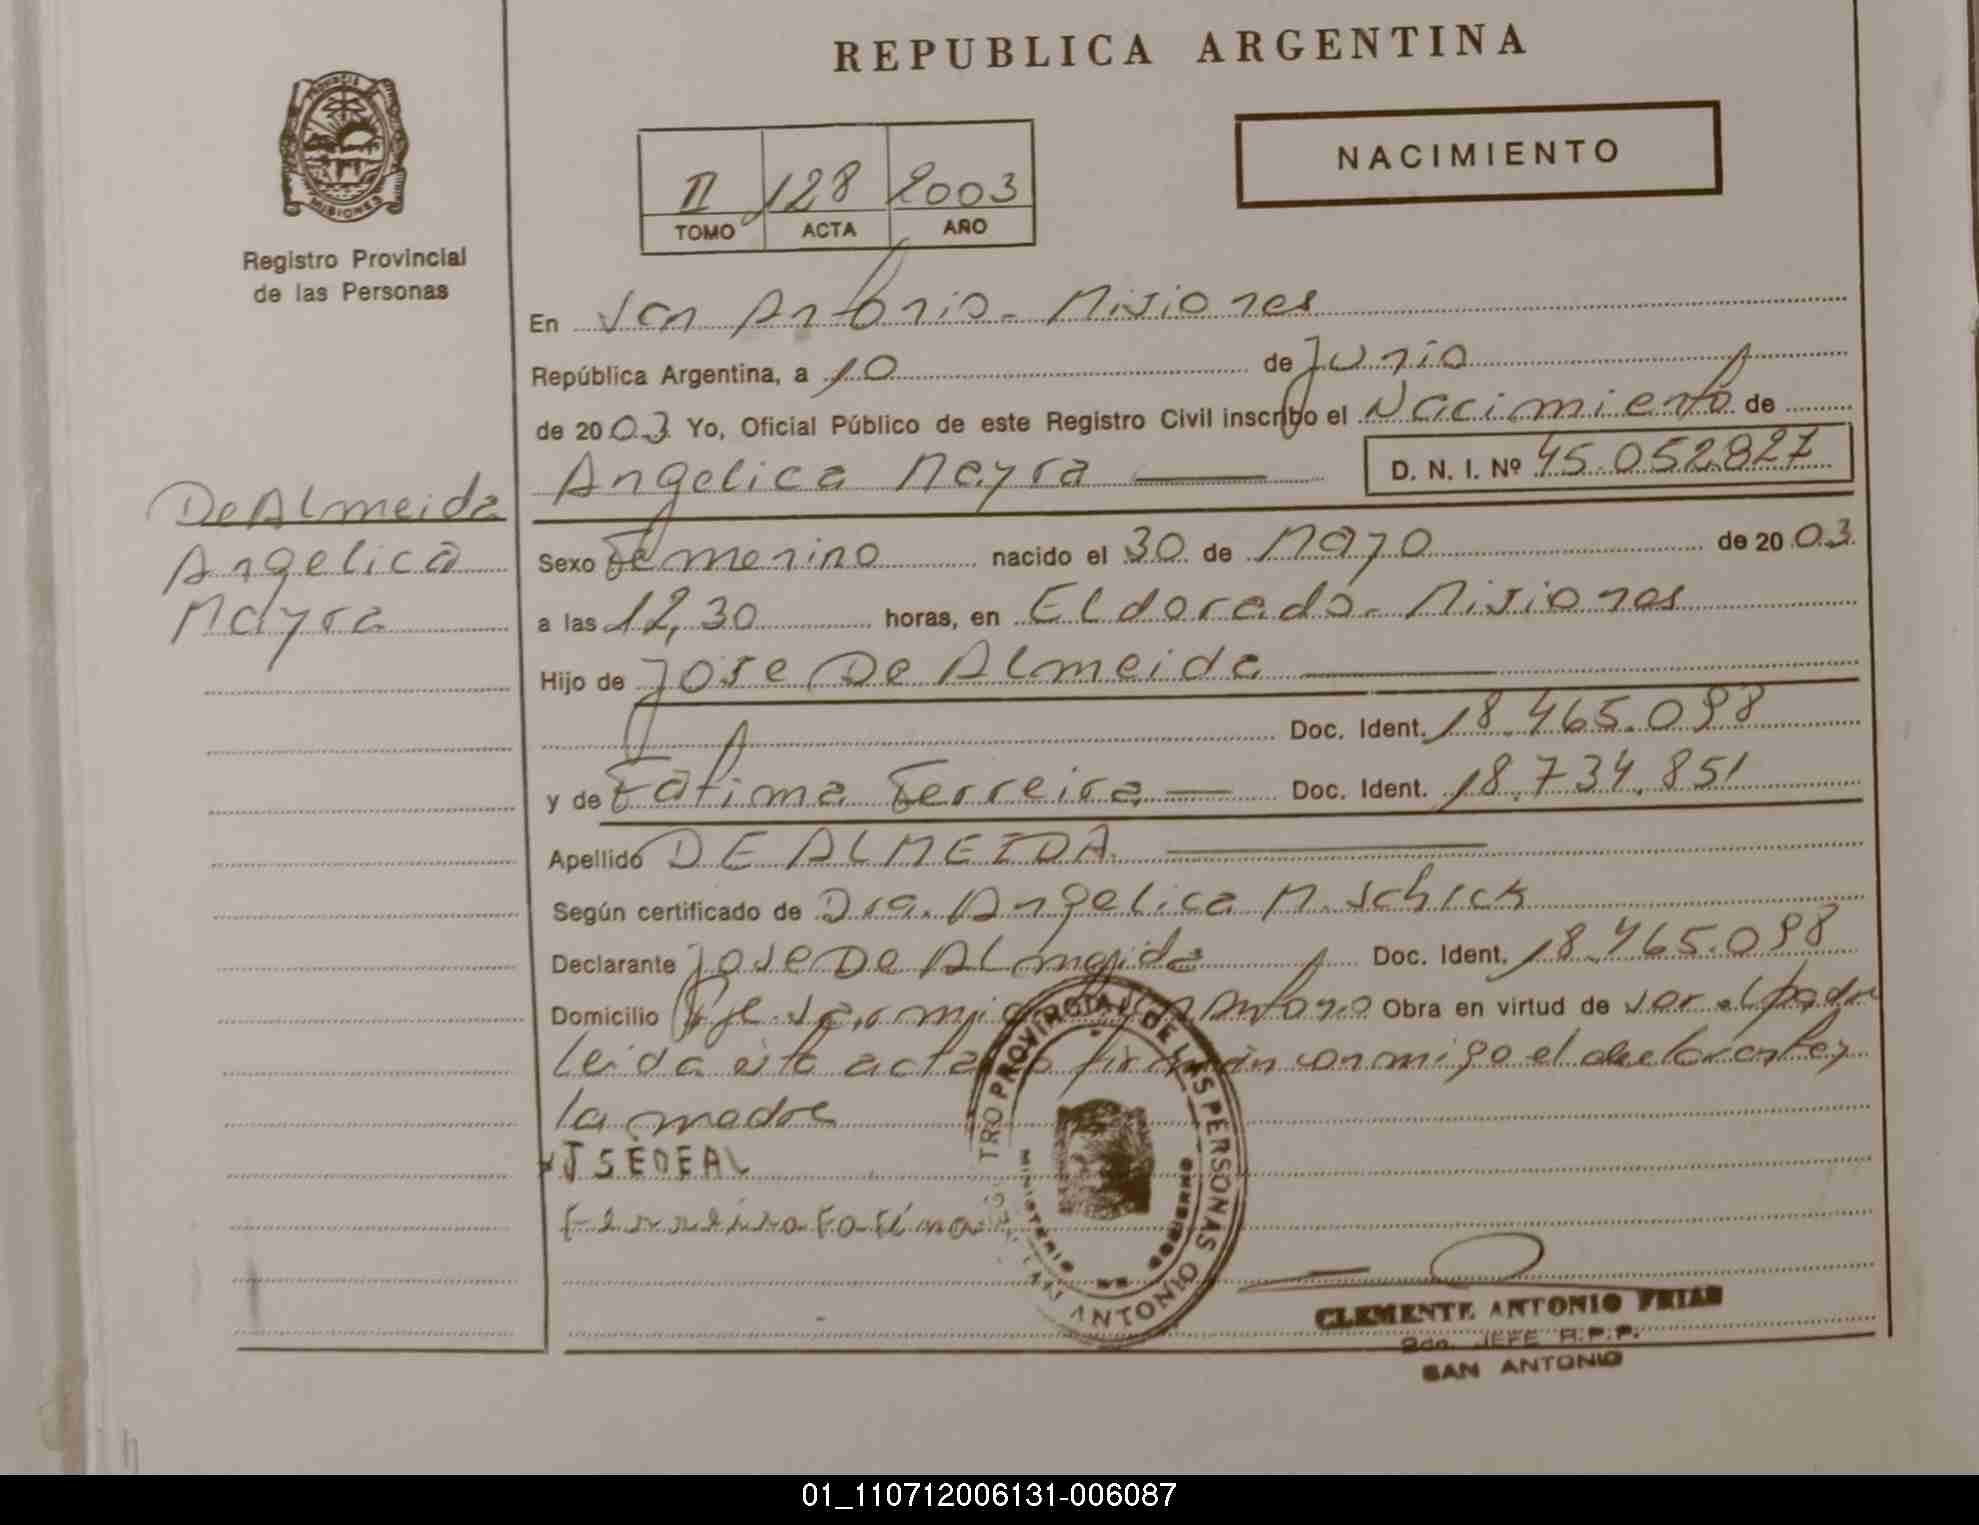 REPUBLICA ARGENTINA
PROVINCIA
MISIONES
Registro Provincial
de las Personas
NACIMIENTO
II 128 2003
TOMO ACTA AÑO
En San Antonio - Misiones
República Argentina, a 10 de Junio
de 2003 Yo, Oficial Público de este Registro Civil inscribo el Nacimiento de
Angelica Mayra D. N. I. Nº 45.052.827
De Almeida
Angelica
Mayra
Sexo Femenino nacido el 30 de Mayo de 2003
a las 12,30 horas, en Eldorado - Misiones
Hijo de Jose De Almeida
Doc. Ident. 18.465.098
y de Fatima Ferreira Doc. Ident. 18.734.851
Apellido DE ALMEIDA
Según certificado de Dra. Angelica M. Schick
Declarante Jose De Almeida Doc. Ident. 18.465.098
Domicilio San Antonio Obra en virtud de ser el padre
leida esta acta firman conmigo el declarante y
la madre
JSEDEAL
Ferreira Fatima
PROVINCIAL DE LAS PERSONAS
MINISTERIO DE GOBIERNO
SAN ANTONIO
CLEMENTE ANTONIO FRIAS
JEFE R.P.P.
SAN ANTONIO
01_110712006131-006087